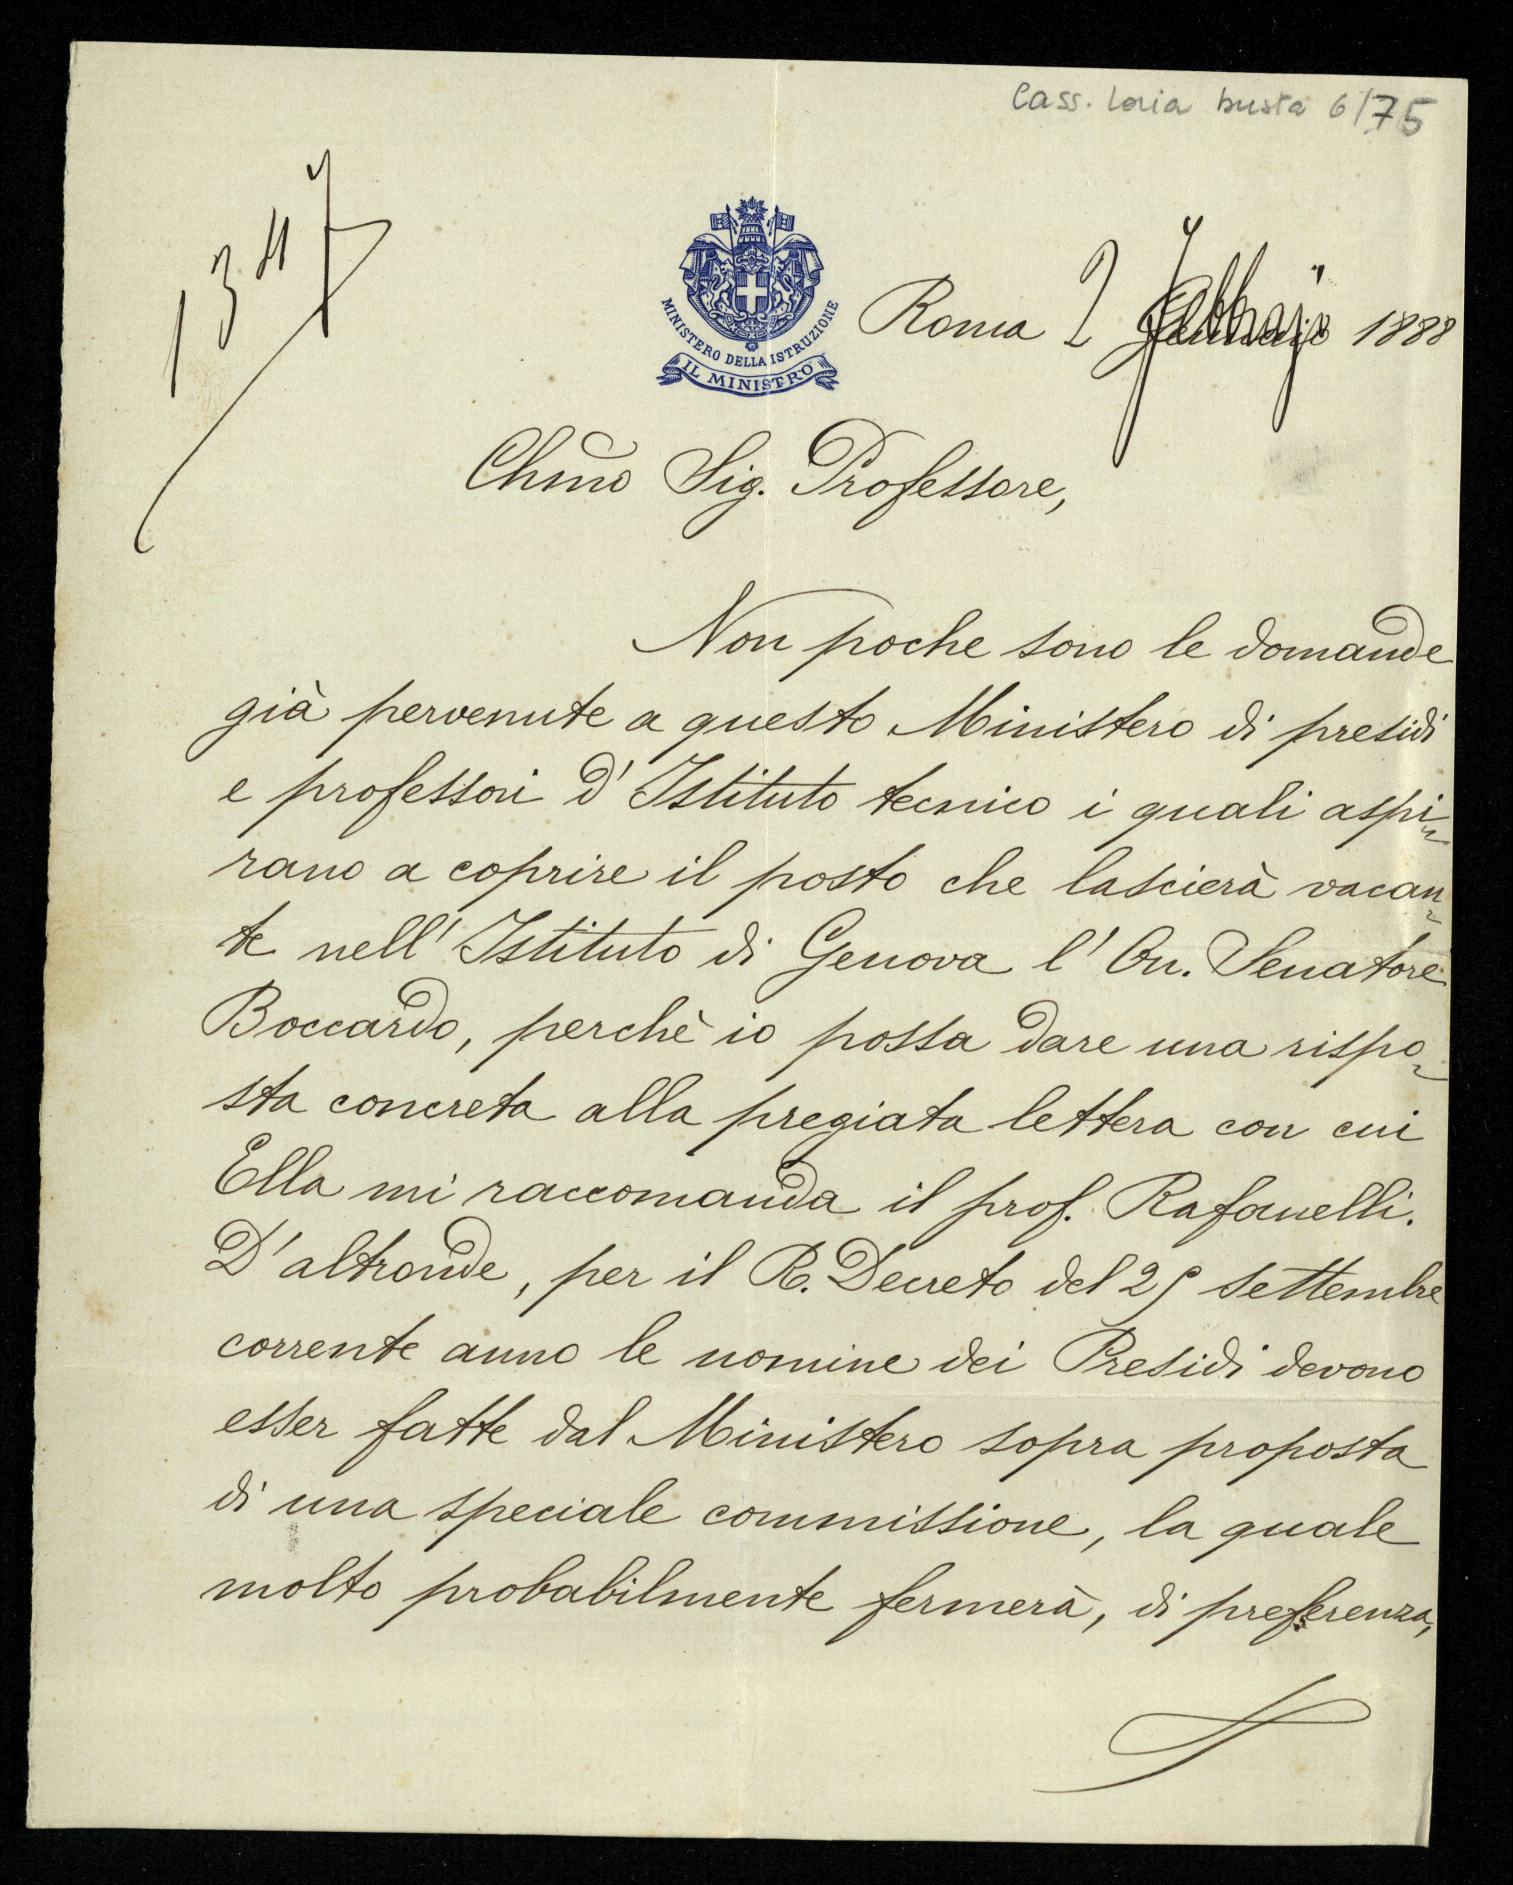 Cass. Loria busta 6/75
1347
MINISTERO DELLA ISTRUZIONE
IL MINISTRO
Roma 2 Febbrajo 1888
Chmo Sig. Professore,
Non poche sono le domande
già pervenute a questo Ministero di presidi
e professori d'Istituto tecnico i quali aspi-
rano a coprire il posto che lascierà vacan-
te nell'Istituto di Genova l'On. Senatore
Boccardo, perchè io possa dare una rispo-
sta concreta alla pregiata lettera con cui
Ella mi raccomanda il prof. Rafanelli.
D'altronde, per il R. Decreto del 29 settembre
corrente anno le nomine dei Presidi devono
esser fatte dal Ministero sopra proposta
di una speciale commissione, la quale
molto probabilmente fermerà, di preferenza,